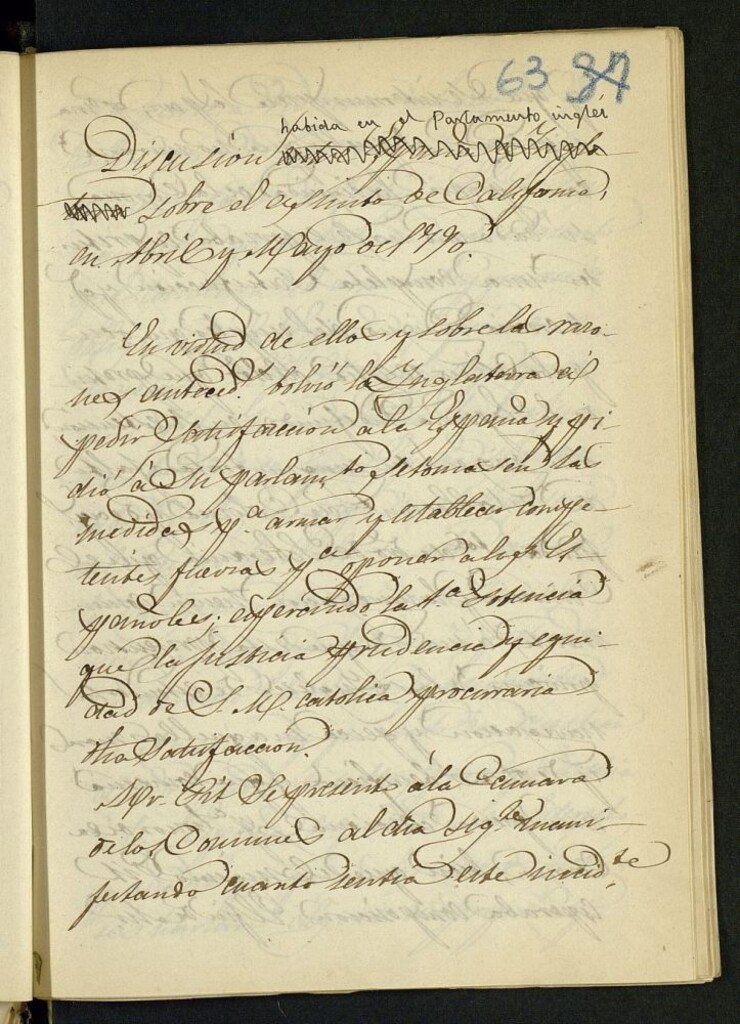 63 37
habida en el Parlamento inglés
Discusión
sobre el asunto de California,
en Abril y Mayo de 1790.
En virtud de ello y sobre la razo-
nes anteced.s bolvió la Inglaterra á
pedir satisfacción a la España y pi-
dió á su parlam.to se tomasen las
medidas p.a armar y establecer compe-
tentes fuerzas p.a oponer a los Es-
pañoles; esperando la
que la justicia prudencia y equi-
dad de S. M. catolica procuraria
dha satisfaccion.
Mr. Pit se presentó á la Camara
de los Comunes al dia sig.te mani-
festando cuanto sentia este incid.te